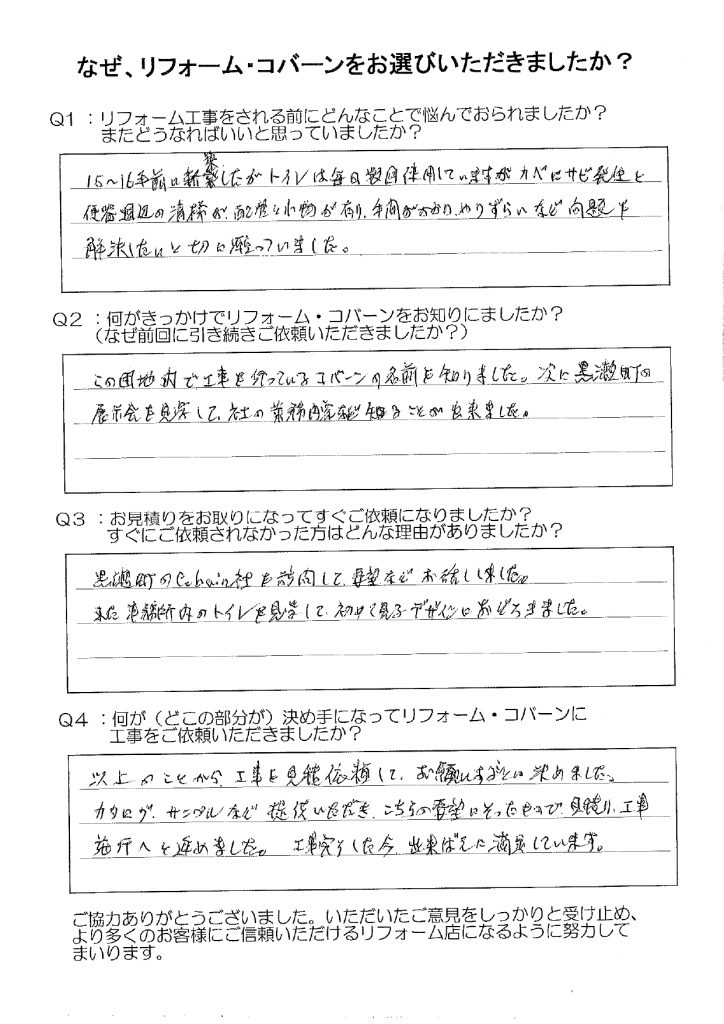 なぜ、リフォーム・コバーンをお選びいただきましたか？
Q1：リフォーム工事をされる前にどんなことで悩んでおられましたか？
またどうなればいいと思っていましたか？
15～16年前に新築したがトイレは毎日数回使用していますがカベにサビ発生と
便器周辺の清掃が、配管と小物が有り、手間がかかり、やりずらいなど問題を
解決したいと切に願っていました。
Q2：何がきっかけでリフォーム・コバーンをお知りにましたか？
（なぜ前回に引き続きご依頼いただきましたか？）
この団地内で工事を行っているコバーンの名前を知りました。次に黒瀬町の
展示会を見学して、社の業務内容など知ることが出来ました。
Q3：お見積りをお取りになってすぐご依頼になりましたか？
すぐにご依頼されなかった方はどんな理由がありましたか？
黒瀬町のCobain社を訪問して、要望などお話ししました。
また事務所内のトイレを見学して、初めて見るデザインにおどろきました。
Q4：何が（どこの部分が）決め手になってリフォーム・コバーンに
工事をご依頼いただきましたか？
以上のことから、工事を見積依頼して、お願いすることに決めました。
カタログ、サンプルなど提供いただき、こちらの要望にそったもので見積り、工事
施行へと進めました。 工事完了した今、出来ばえに満足しています。
ご協力ありがとうございました。いただいたご意見をしっかりと受け止め、
より多くのお客様にご信頼いただけるリフォーム店になるように努力して
まいります。